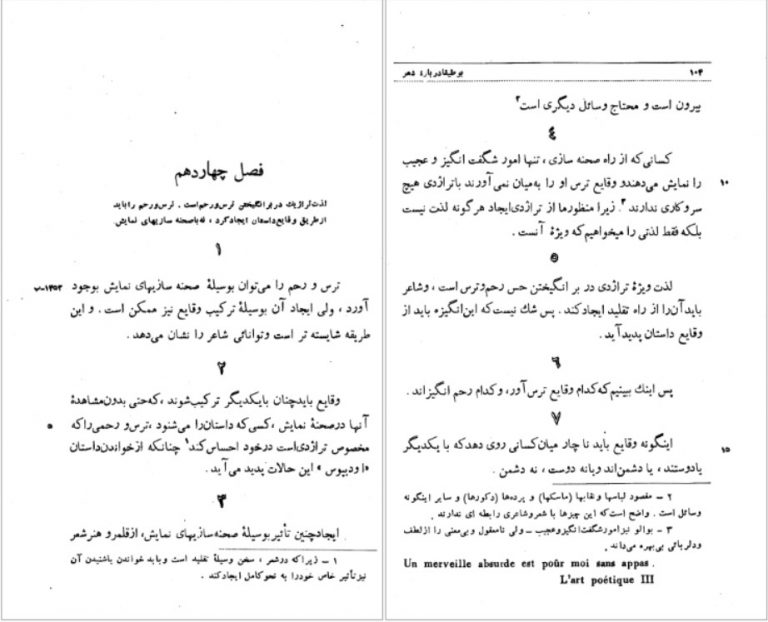 فصل چهاردهم
لذت تراژیك در برانگیختن ترس ورحم است . ترس و رحم را باید
از طریق وقایع داستان ایجاد کرد ، نه با صحنه سازیهای نمایش.
۱
ترس و رحم را می‌توان بوسیلهٔ صحنه سازیهای نمایش بوجود ۱۴۵۳-ب
آورد ، ولی ایجاد آن بوسیلهٔ ترکیب وقایع نیز ممکن است . و این
طریقه شایسته تر است وتوانائی شاعر را نشان می‌دهد.
۲
وقایع باید چنان بایکدیگر ترکیب شوند ، که حتی بدون مشاهدهٔ
آنها درصحنهٔ نمایش ، کسی که داستان را می‌شنود ، ترس و رحمی را که ۵
مخصوص تراژدی است درخود احساس کند۱ چنانکه ازخواندن داستان
«اودیپوس» این حالات پدید می‌آید .
۳
ایجاد چنین تأثیر بوسیلهٔ صحنه سازیهای نمایش، ازقلمرو هنر شعر
۱ – زیرا که درشعر ، سخن وسیلهٔ تقلید است و باید خواندن باشنیدن آن
نیز تأثیر خاص خود را به نحو کامل ایجاد کند .
۱۰۴ بوطیقا در بارهٔ شعر
بیرون است و محتاج وسائل دیگری است۲
٤
کسانی که از راه صحنه سازی ، تنها امور شگفت انگیز و عجیب
را نمایش می‌دهند و وقایع ترس او را به میان نمی‌آورند با تراژدی هیچ ۱۰
سر و کاری ندارند۳. زیرا منظور ما از تراژدی ایجاد هرگونه لذت نیست
بلکه فقط لذتی را میخواهیم که ویژهٔ آنست .
۵
لذت ویژهٔ تراژدی در بر انگیختن حس رحم و ترس است ، وشاعر
باید آن را از راه تقلید ایجاد کند. پس شك نیست که این انگیزه باید از
وقایع داستان پدید آید .
۶
پس اینك ببینیم که کدام وقایع ترس آور، و کدام رحم انگیز اند .
۷
اینگونه وقایع باید نا چار میان کسانی روی دهد که با یکدیگر ۱۵
یا دوستند ، یا دشمن اند و یا نه دوست ، نه دشمن .
۲ – مقصود لباسها و نقابها (ماسکها) و پرده‌ها (دکورها) و سایر اینگونه
وسائل است . واضح است که این چیزها با شعر و شاعری رابطه ای ندارند .
۳ – بوالو نیز امور شگفت انگیز و عجیب ـ ولی نامعقول و بی‌معنی را از لطف
و دلربائی بی‌بهره می‌داند .
Un merveille absurde est poûr moi sans appas .
L'art poétique III